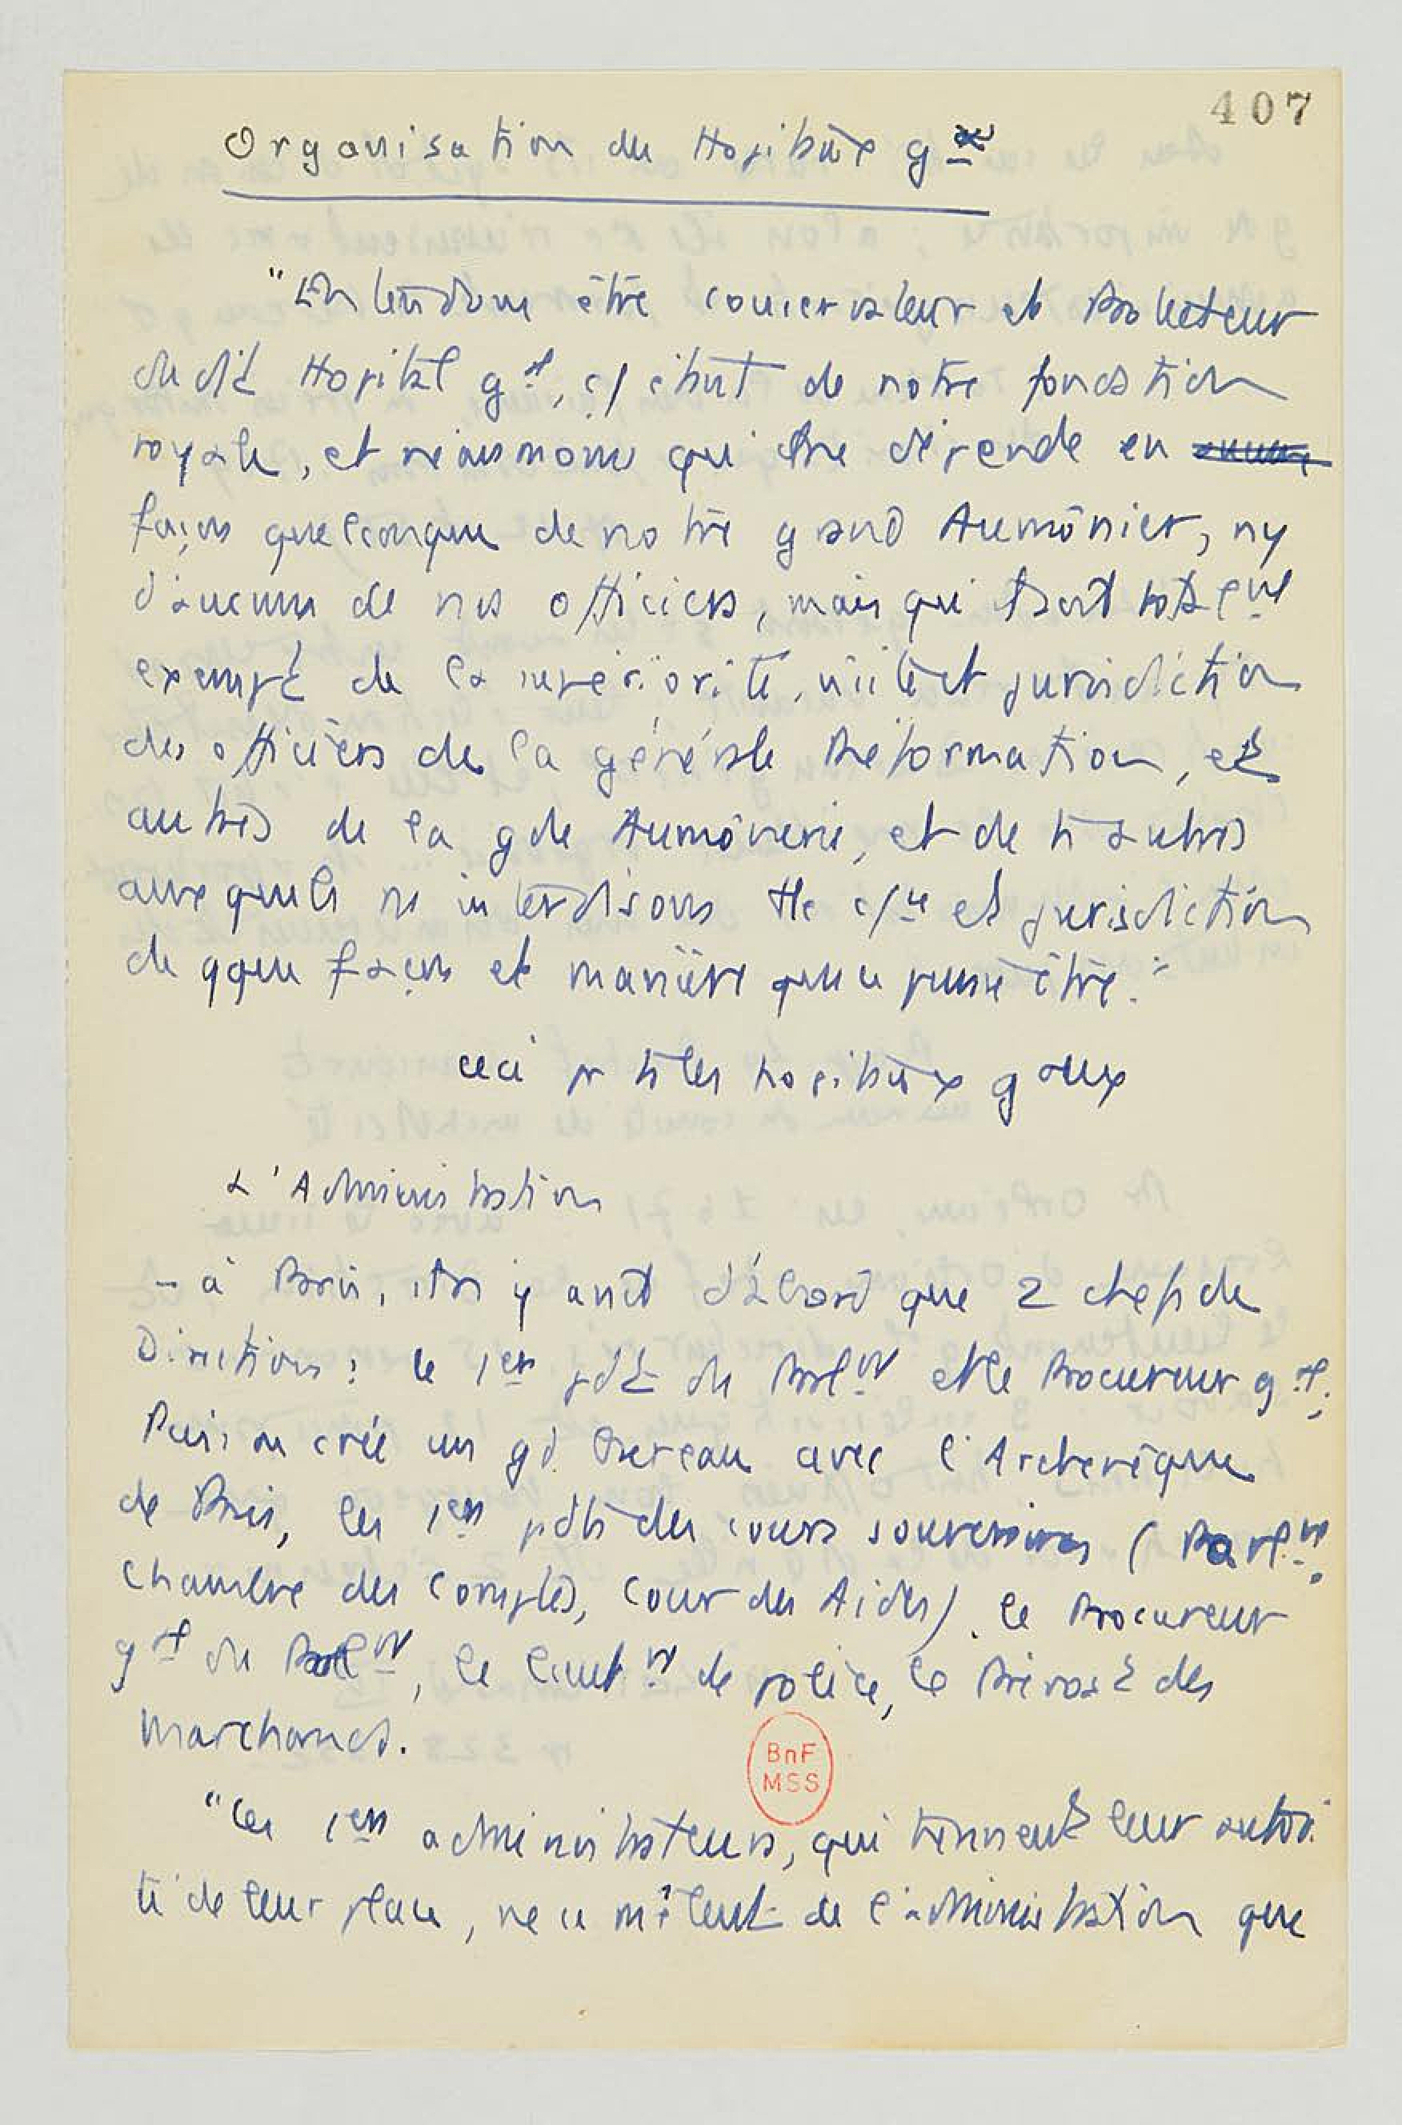 407
Organisation des Hopitaux gx
"Entendons être conservateur et Protecteur
dudit Hopital gal, c/ étant de notre fondation
royale, et néanmoins qui ne dépende en
façon quelconque de notre grand Aumônier, ny
d'aucuns de nos officiers, mais qui soit totalent
exempt de la supériorité, visite et jurisdiction
des officiers de la générale Réformation, et
autres de la gde Aumônerie, et de ts autres
auxquels ns interdisons tte c/ce et jurisdiction
de qque façon et manière que ce puisse être."
ceci pr ts les hopitaux gaux
L'Administration
- à Paris, il n'y avait d'abord que 2 chefs de
Direction : le 1er pdt du Parlnt et le Procureur gal.
Puis on crée un gd Bureau avec l'Archevêque
de Paris, les 1ers pdts des cours souveraines (Parlnt,
Chambre des Comptes, Cour des Aides), le Procureur
gal du Parlnt, le lieutnt de police, le Prévost des
Marchands.
"Ces 1ers administrateurs, qui tiennent leur autori
té de leur place, ne se mêlent de l'administration que
BnF
MSS